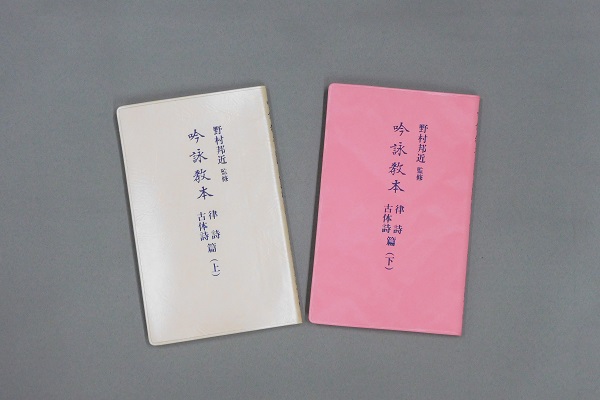 野村邦近 監修
吟詠教本
律詩
古体詩 篇（上）
野村邦近 監修
吟詠教本
律詩
古体詩 篇（下）